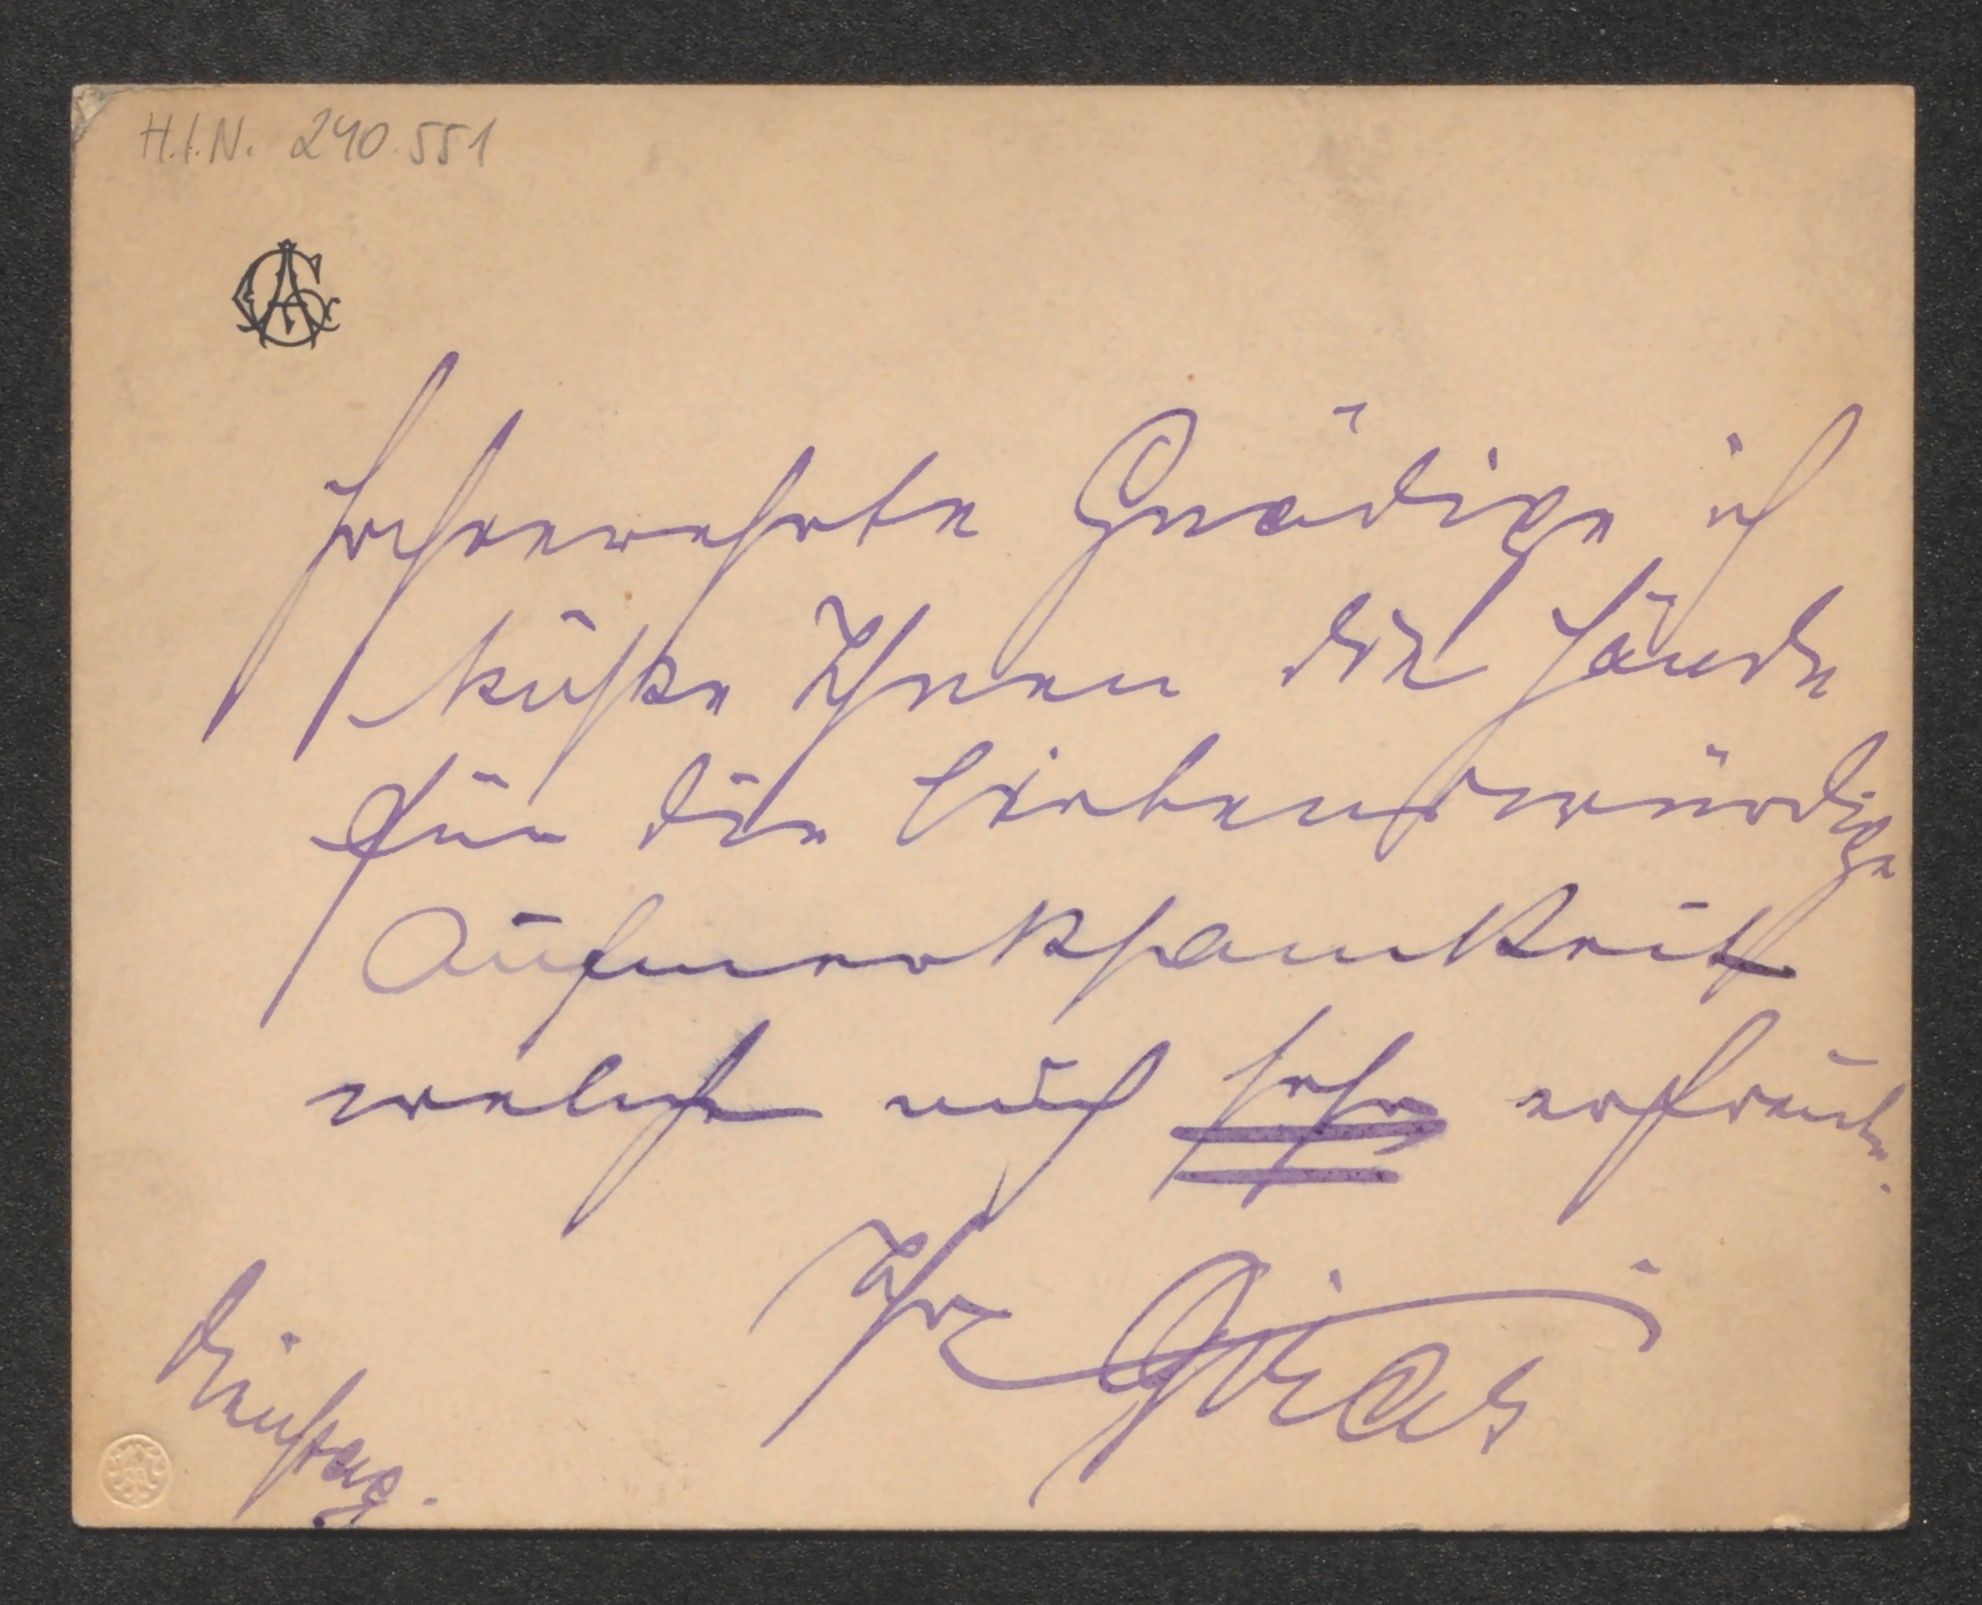 H.I.N. 240.551
Hochverehrte Gnädige ich
küße Ihnen die Hände
für die liebenswürdige
Aufmerksamkeit
welche mich sehr erfreute.
Ihr
Dienstag.